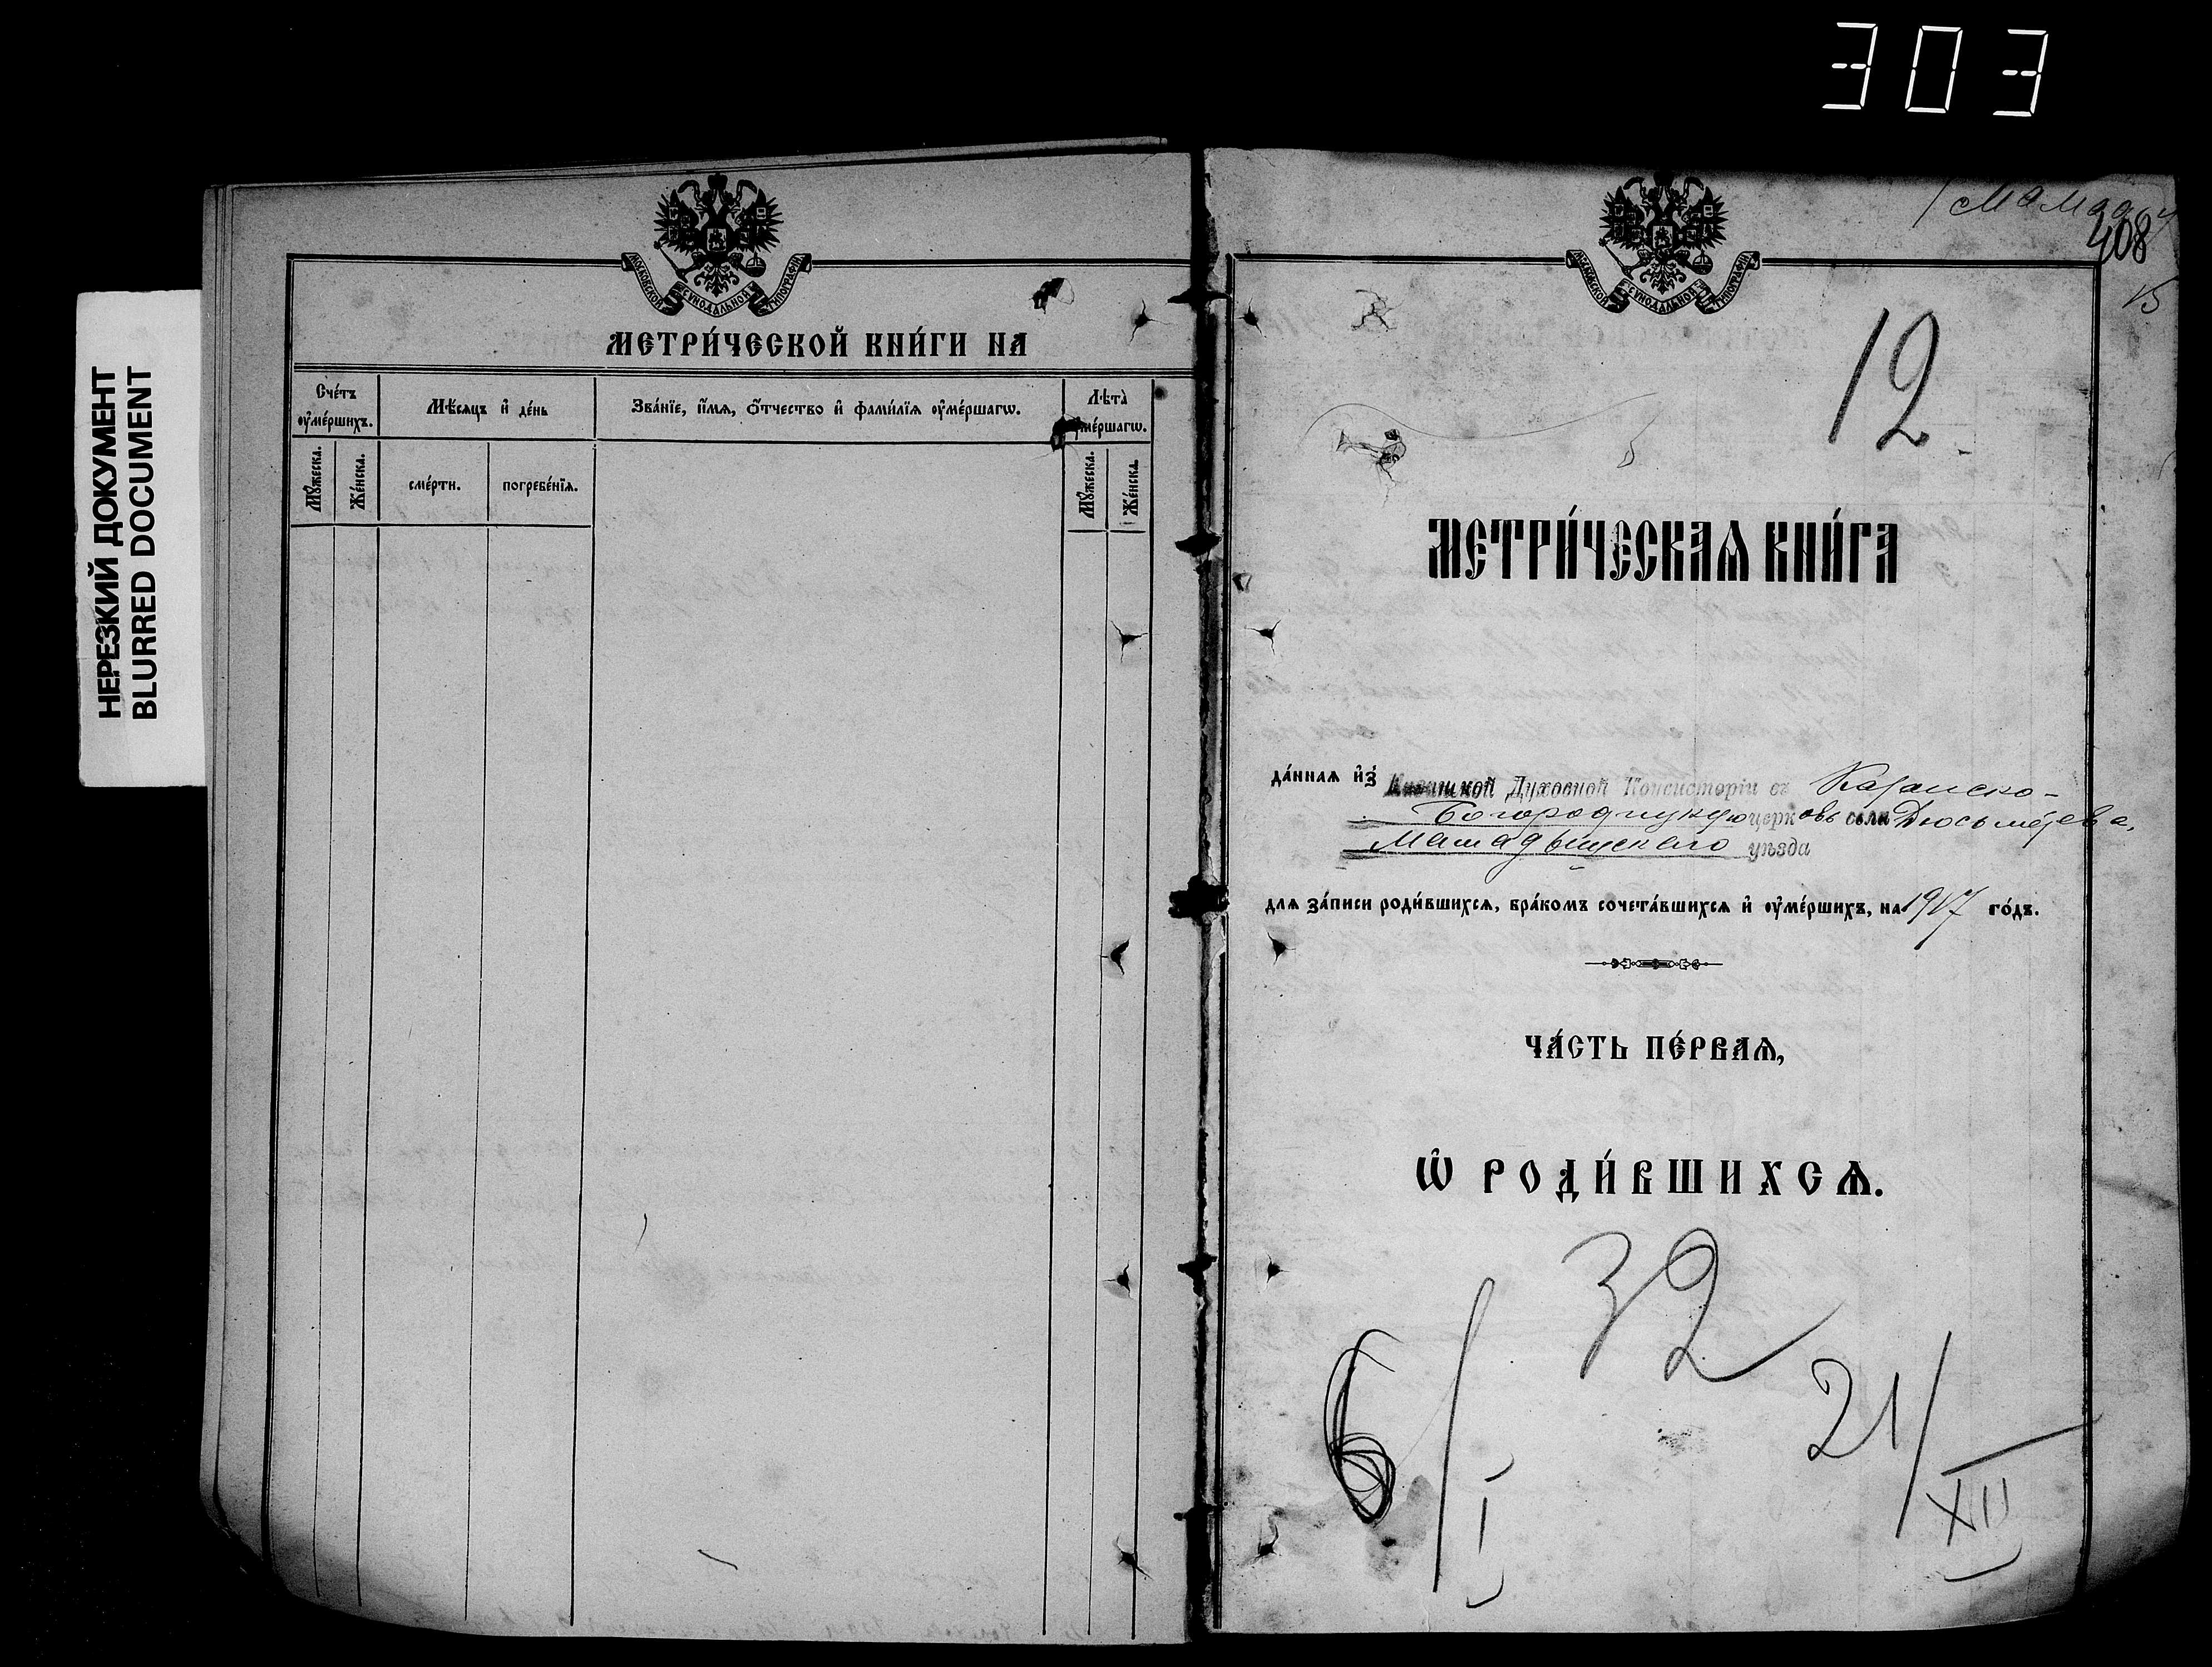 303
НЕРЕЗКИЙ ДОКУМЕНТ
BLURRED DOCUMENT
МОСКОВСКОЙ СУНОДАЛЬНОЙ ТИПОГРАФІИ
МЕТРИ́ЧЕСКОЙ КНИ́ГИ НА
Сче́тъ ᲂу҆ме́ршихъ.
Мѣ́сяцъ и҆ де́нь
Зва́нїе, и҆́мѧ, ѻ҆́тчество и҆ фами́лїѧ ᲂу҆ме́ршагѡ.
Лѣта̀ ᲂу҆ме́ршагѡ.
Мꙋ́жеска.
Же́нска.
сме́рти.
погребе́нїѧ.
Мꙋ́жеска.
Же́нска.
МОСКОВСКОЙ СУНОДАЛЬНОЙ ТИПОГРАФІИ
408
15
12
МЕТРИ́ЧЕСКАѦ КНИ́ГА
да́ннаѧ и҆з̾ Казанской Духовной Консисторіи въ Казанско-
Богородицкую церковь села Дюсьметева,
Мамадышскаго уѣзда
длѧ за́писи роди́вшихсѧ, бра́комъ сочета́вшихсѧ и҆ ᲂу҆ме́ршихъ, на 1917 го́дъ.
ЧА́СТЬ ПЕ́РВАѦ,
Ѽ РОДИ́ВШИХСѦ.
32
6/I
21/XII